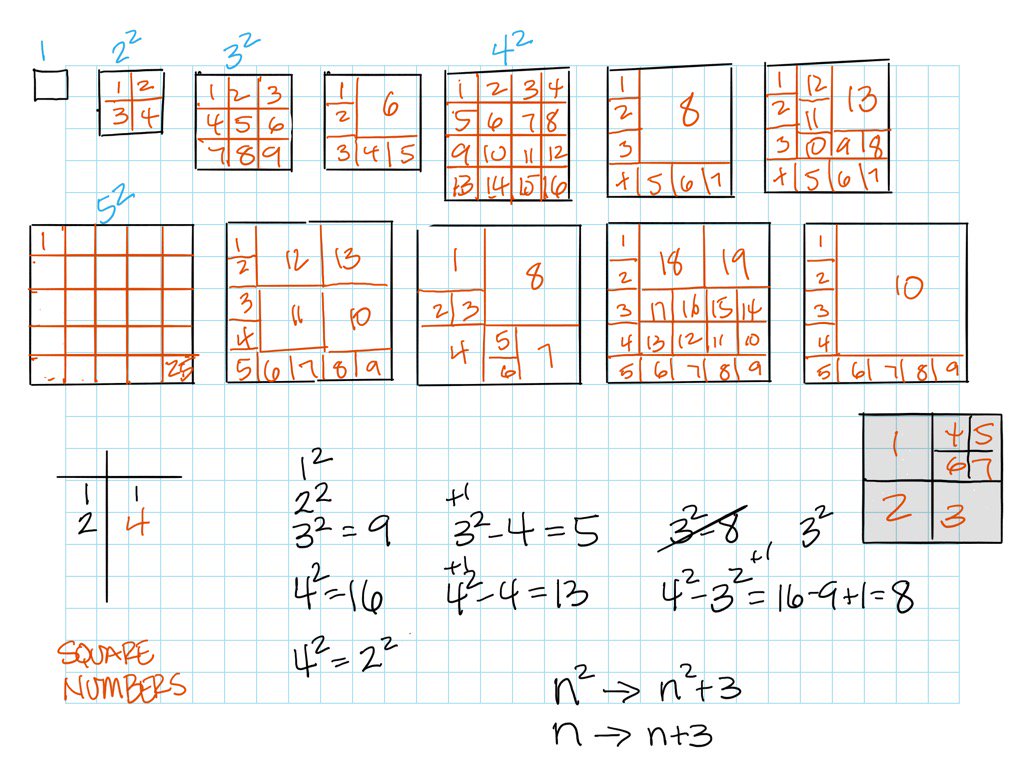 1 2² 3² 4²
1 2
3 4
1 2 3
4 5 6
7 8 9
1 6
2
3 4 5
1 2 3 4
5 6 7 8
9 10 11 12
13 14 15 16
1 8
2
3
4 5 6 7
1 12 13
2 11
3 10 9 8
4 5 6 7
5²
1
25
1 12 13
2
3 11 10
4
5 6 7 8 9
1 8
2 3
4 5 7
6
1 18 19
2
3 17 16 15 14
4 13 12 11 10
5 6 7 8 9
1
2 10
3
4
5 6 7 8 9
1 4 5
6 7
2 3
1 1
2 4
SQUARE
NUMBERS
1²
2²
3² = 9
4² = 16
4² = 2²
+1
3² - 4 = 5
+1
4² - 4 = 13
3² - 8 3²
4² - 3² +1 = 16 - 9 + 1 = 8
n² → n² + 3
n → n + 3